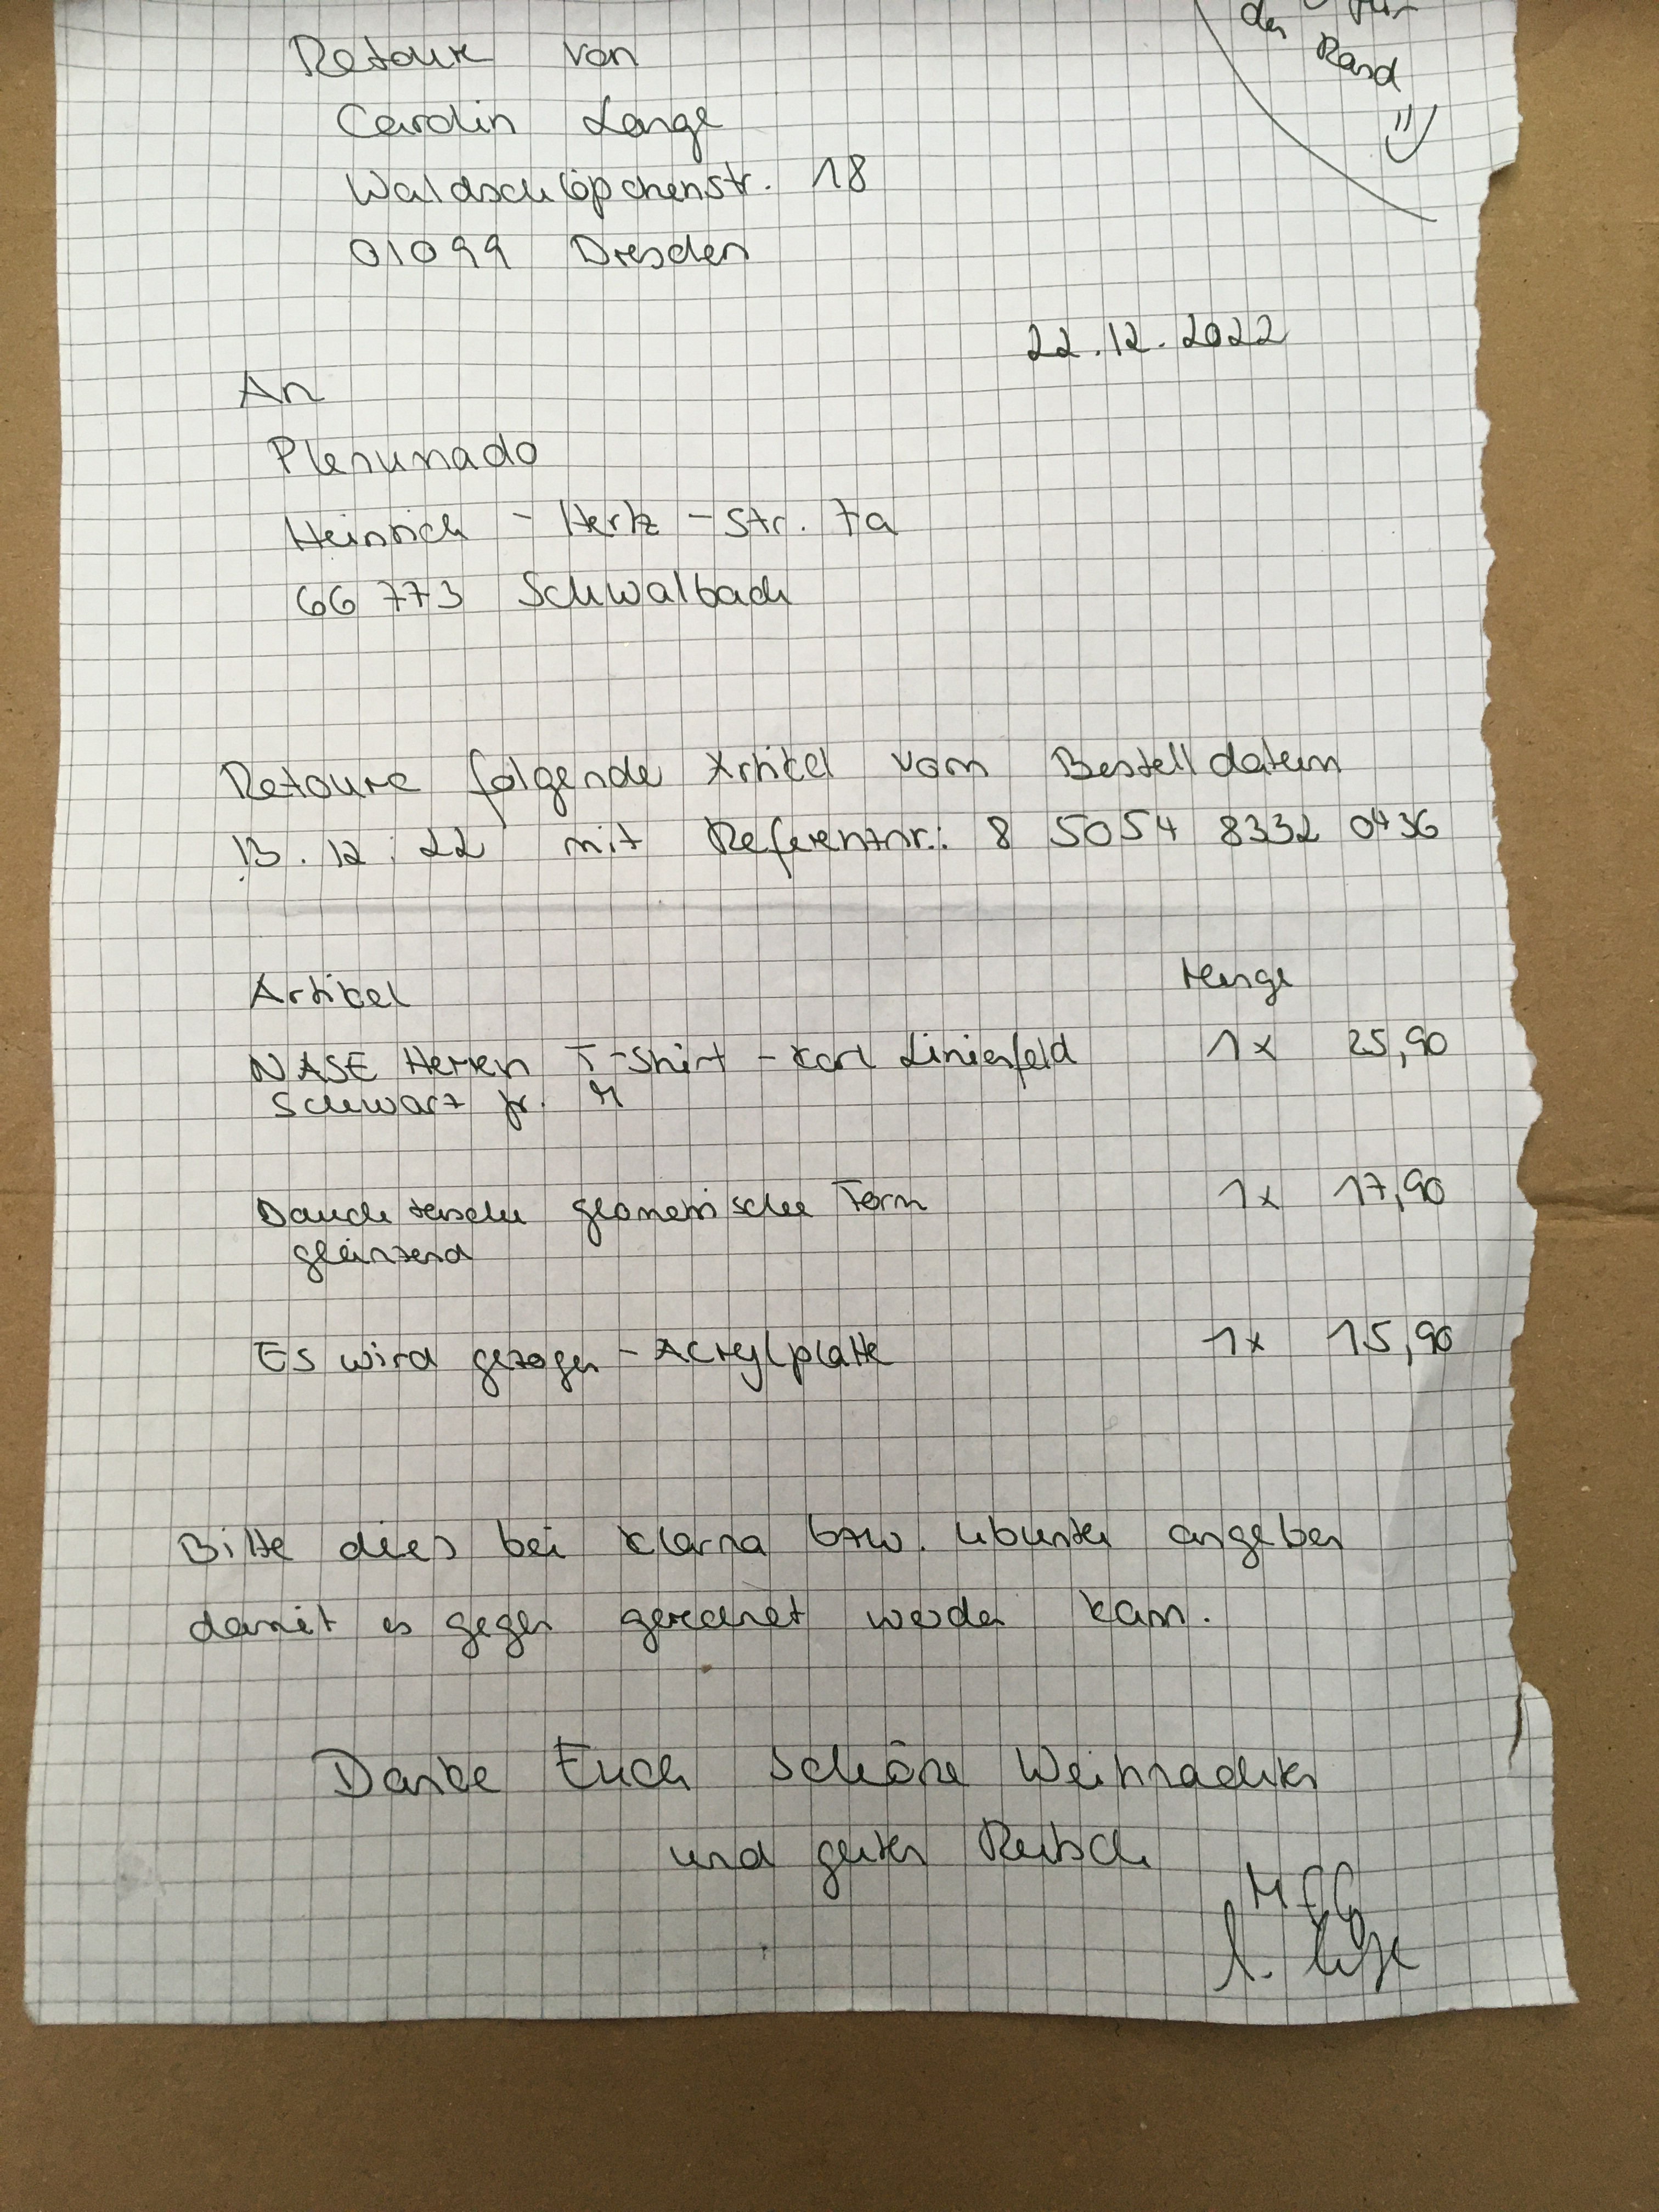 der für
Rand
Retoure von
Carolin Lange
Waldschlößchenstr. 18
01099 Dresden
22.12.2022
An
Plenumado
Heinrich - Hertz - Str. 7a
66 773 Schwalbach
Retoure folgende Artikel vom Bestelldatum
13.12.22 mit Referentnr.: 8 5054 8332 0436
Artikel Menge
NASE Herren T-Shirt - Karl Linienfeld 1x 25,90
Schwarz gr. M
geometrische Form 1x 17,90
glänzend
Es wird gezogen - Acrylplatte 1x 15,90
Bitte dies bei Klarna bzw. angeben
damit es gegen gerechnet werden kann.
Danke Euch schöne Weihnachten
und guten Rutsch
MFG